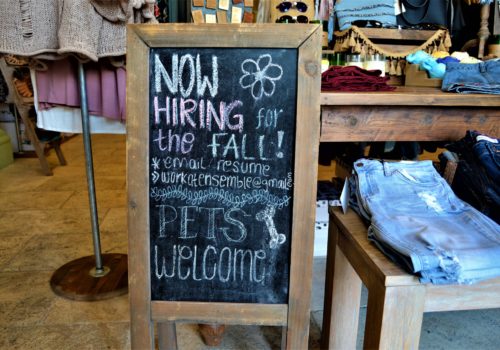 NOW
HIRING for
the FALL!
*email resume
>workatensemble@gmail.com
PETS
WELCOME